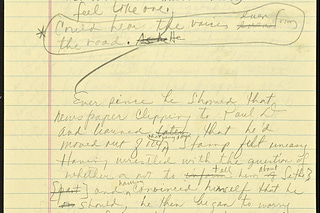 feel like one.
* Could hear the voices even from
the road. He
Ever since he showed that
newspaper clipping to Paul D
and learned that he'd
moved out of 124, Stamp felt uneasy
Having wrestled with the question of
whether or not to tell him about Sethe's
and having convinced himself that he
should, he then began to worry